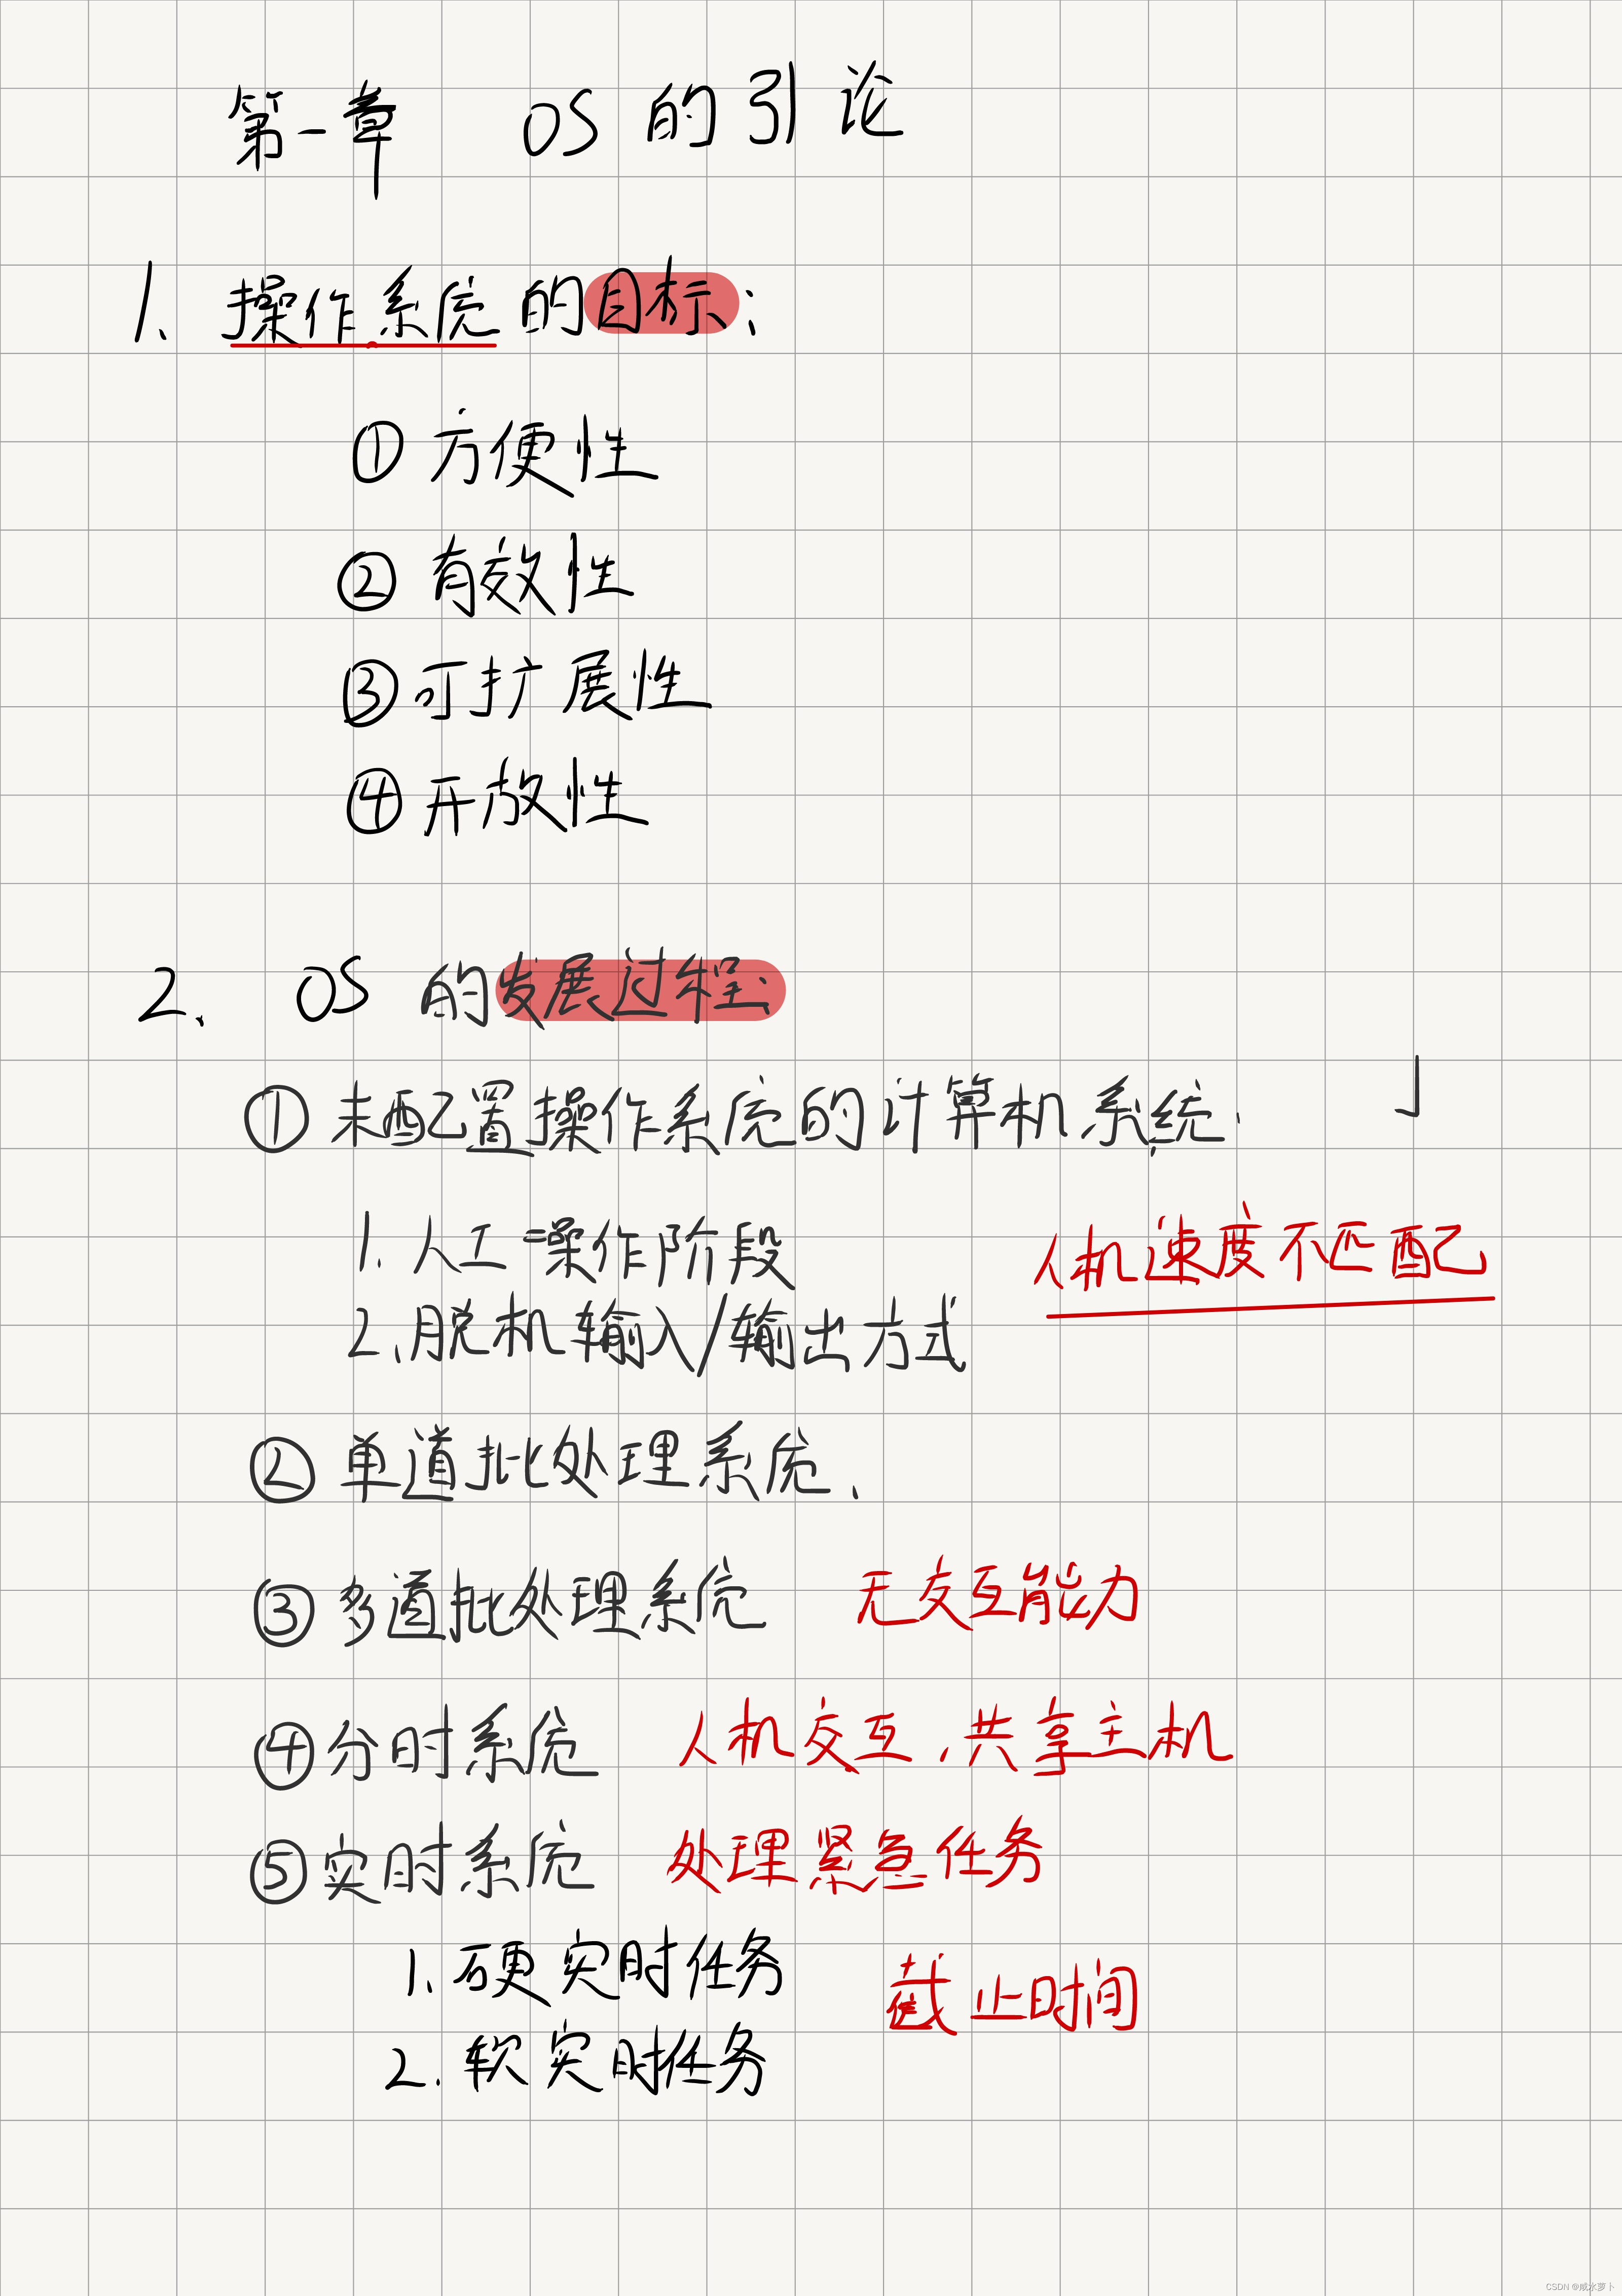 第一章 OS的引论
1、操作系统的目标：
①方便性
②有效性
③可扩展性
④开放性
2、OS的发展过程：
①未配置操作系统的计算机系统.
1.人工操作阶段 人机速度不匹配
2.脱机输入/输出方式
②单道批处理系统、
③多道批处理系统 无交互能力
④分时系统 人机交互，共享主机
⑤实时系统 处理紧急任务
1.硬实时任务 截止时间
2.软实时任务
CSDN @咸水萝卜